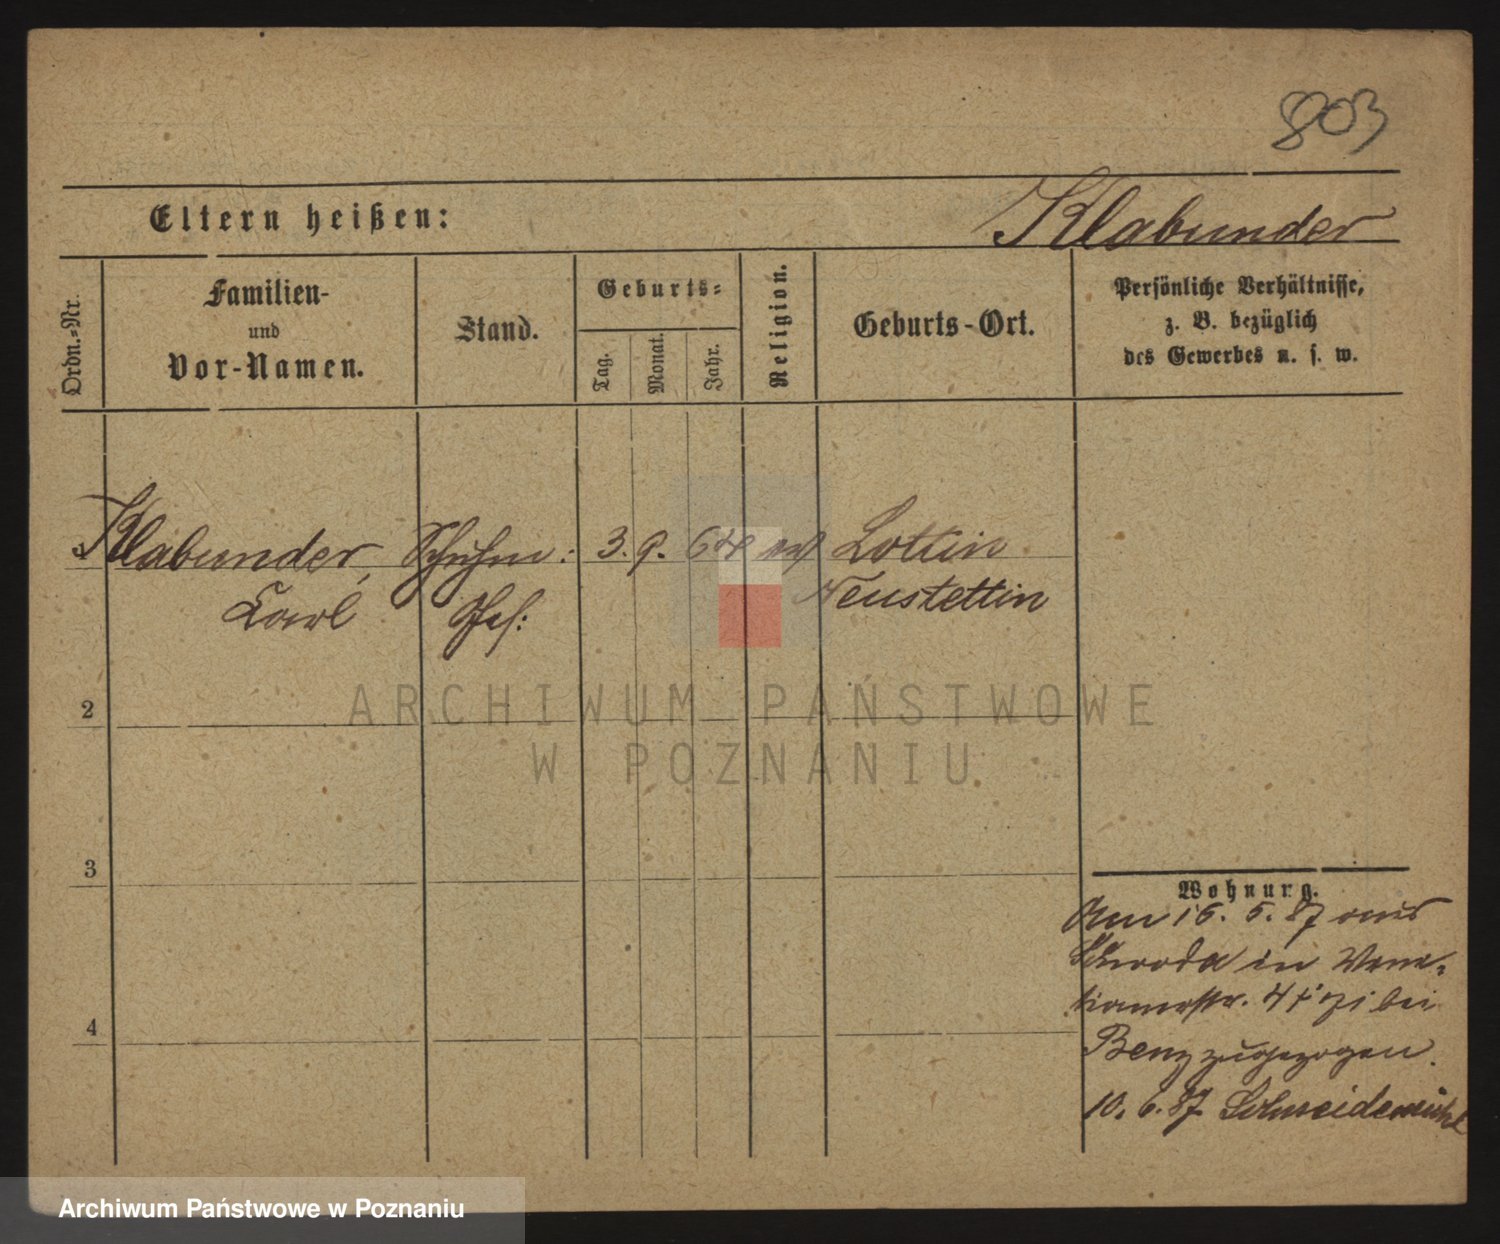 803
Eltern heißen:
Klabunder
Ordn.-Nr.
Familien-
und
Vor-Namen.
Stand.
Geburts-
Tag.
Monat.
Jahr.
Religion.
Geburts-Ort.
Persönliche Verhältnisse,
z. B. bezüglich
des Gewerbes u. s. w.
1 Klabunder, Schuhm: 3. 9. 64 ev Lottin
Carl Ges: Neustettin
ARCHIWUM PAŃSTWOWE
W POZNANIU
2
3
4
Wohnung.
Am 16. 5. 87 aus
Schroda in Vene-
tianerstr. 4 bei
Benz zugezogen.
10. 6. 87 Schneidemühl
Archiwum Państwowe w Poznaniu